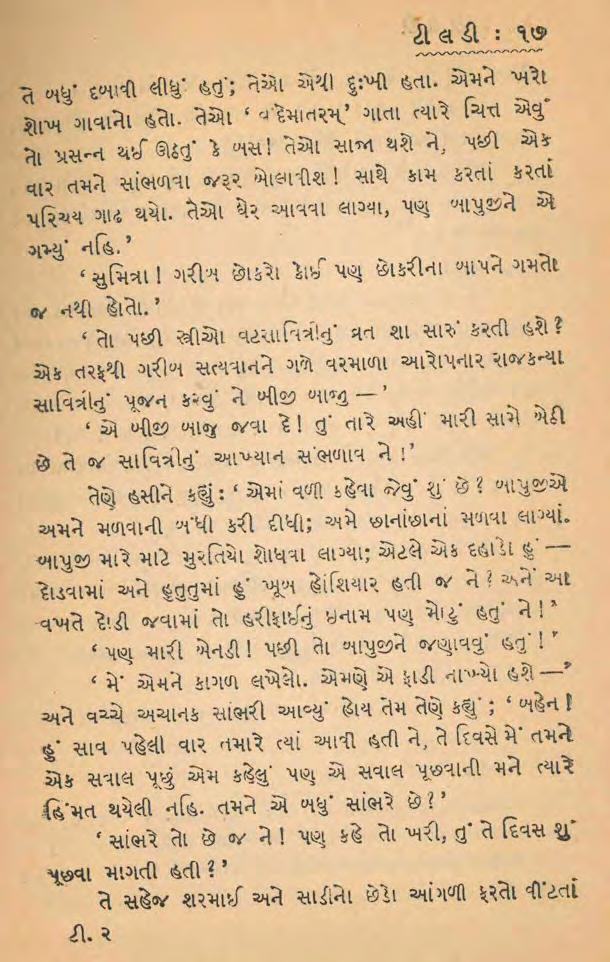 ટીલડી : ૧૭
તે બધું દબાવી લીધું હતું; તેઓ એથી દુઃખી હતા. એમને ખરો
શોખ ગાવાનો હતો. તેઓ ‘ વંદેમાતરમ્’ ગાતા ત્યારે ચિત્ત એવું
તો પ્રસન્ન થઈ ઊઠતું કે બસ! તેઓ સાજા થશે ને, પછી એક
વાર તમને સાંભળવા જરૂર બોલાવીશ! સાથે કામ કરતાં કરતાં
પરિચય ગાઢ થયો. તેઓ ઘેર આવવા લાગ્યા, પણ બાપુજીને એ
ગમ્યું નહિ.’
‘સુમિત્રા! ગરીબ છોકરો કોઈ પણ છોકરીના બાપને ગમતો
જ નથી હોતો.’
‘ તો પછી સ્ત્રીઓ વટસાવિત્રીનું વ્રત શા સારું કરતી હશે?
એક તરફથી ગરીબ સત્યવાનને ગળે વરમાળા આરોપનાર રાજકન્યા
સાવિત્રીનું પૂજન કરવું ને બીજી બાજુ —’
‘ એ બીજી બાજુ જવા દે! તું તારે અહીં મારી સામે બેઠી
છે તે જ સાવિત્રીનું આખ્યાન સંભળાવ ને!’
તેણે હસીને કહ્યું: ‘ એમાં વળી કહેવા જેવું શું છે? બાપુજીએ
અમને મળવાની બંધી કરી દીધી; અમે છાનાંછાનાં મળવા લાગ્યાં.
બાપુજી મારે માટે મુરતિયો શોધવા લાગ્યા; એટલે એક દહાડો હું —
દોડવામાં અને હુતુતુમાં હું ખૂબ હોંશિયાર હતી જ ને? અને આ
વખતે દોડી જવામાં તો હરીફાઈનું ઇનામ પણ મોટું હતું ને!’
‘ પણ મારી બેનડી! પછી તો બાપુજીને જણાવવું હતું!’
‘ મેં એમને કાગળ લખેલો. એમણે એ ફાડી નાખ્યો હશે —’
અને વચ્ચે અચાનક સાંભરી આવ્યું હોય તેમ તેણે કહ્યું; ‘ બહેન!
હું સાવ પહેલી વાર તમારે ત્યાં આવી હતી ને, તે દિવસે મેં તમને
એક સવાલ પૂછું એમ કહેલું પણ એ સવાલ પૂછવાની મને ત્યારે
હિંમત થયેલી નહિ. તમને એ બધું સાંભરે છે?’
‘ સાંભરે તો છે જ ને! પણ કહે તો ખરી, તું તે દિવસ શું
પૂછવા માગતી હતી?’
તે સહેજ શરમાઈ અને સાડીનો છેડો આંગળી ફરતો વીંટતાં
ટી. ૨